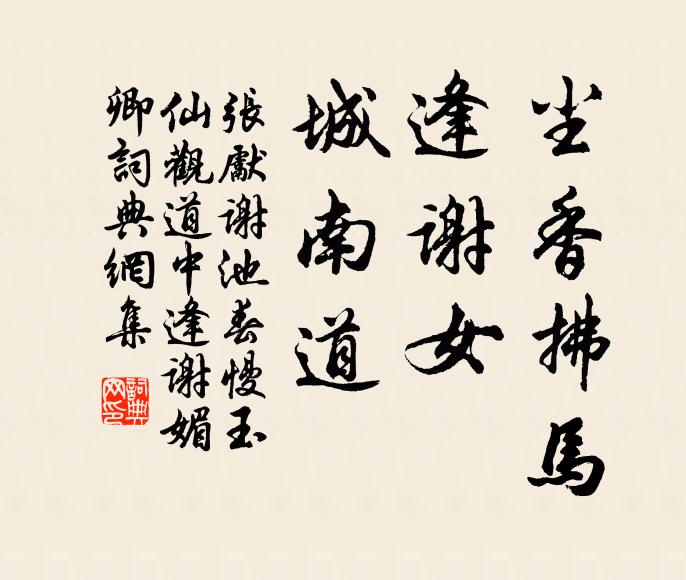 尘香拂馬
逢謝女
城南道
張獻謝池春慢玉
仙觀道中逢謝媚
卿詞典網集
詞典
网印